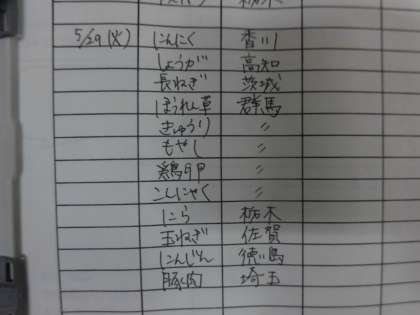 5/29(火) にんにく 香川
しょうが 高知
長ねぎ 茨城
ほうれん草 群馬
きゅうり 〃
もやし 〃
鶏卵 〃
こんにゃく 〃
にら 栃木
玉ねぎ 佐賀
にんじん 徳島
豚肉 埼玉